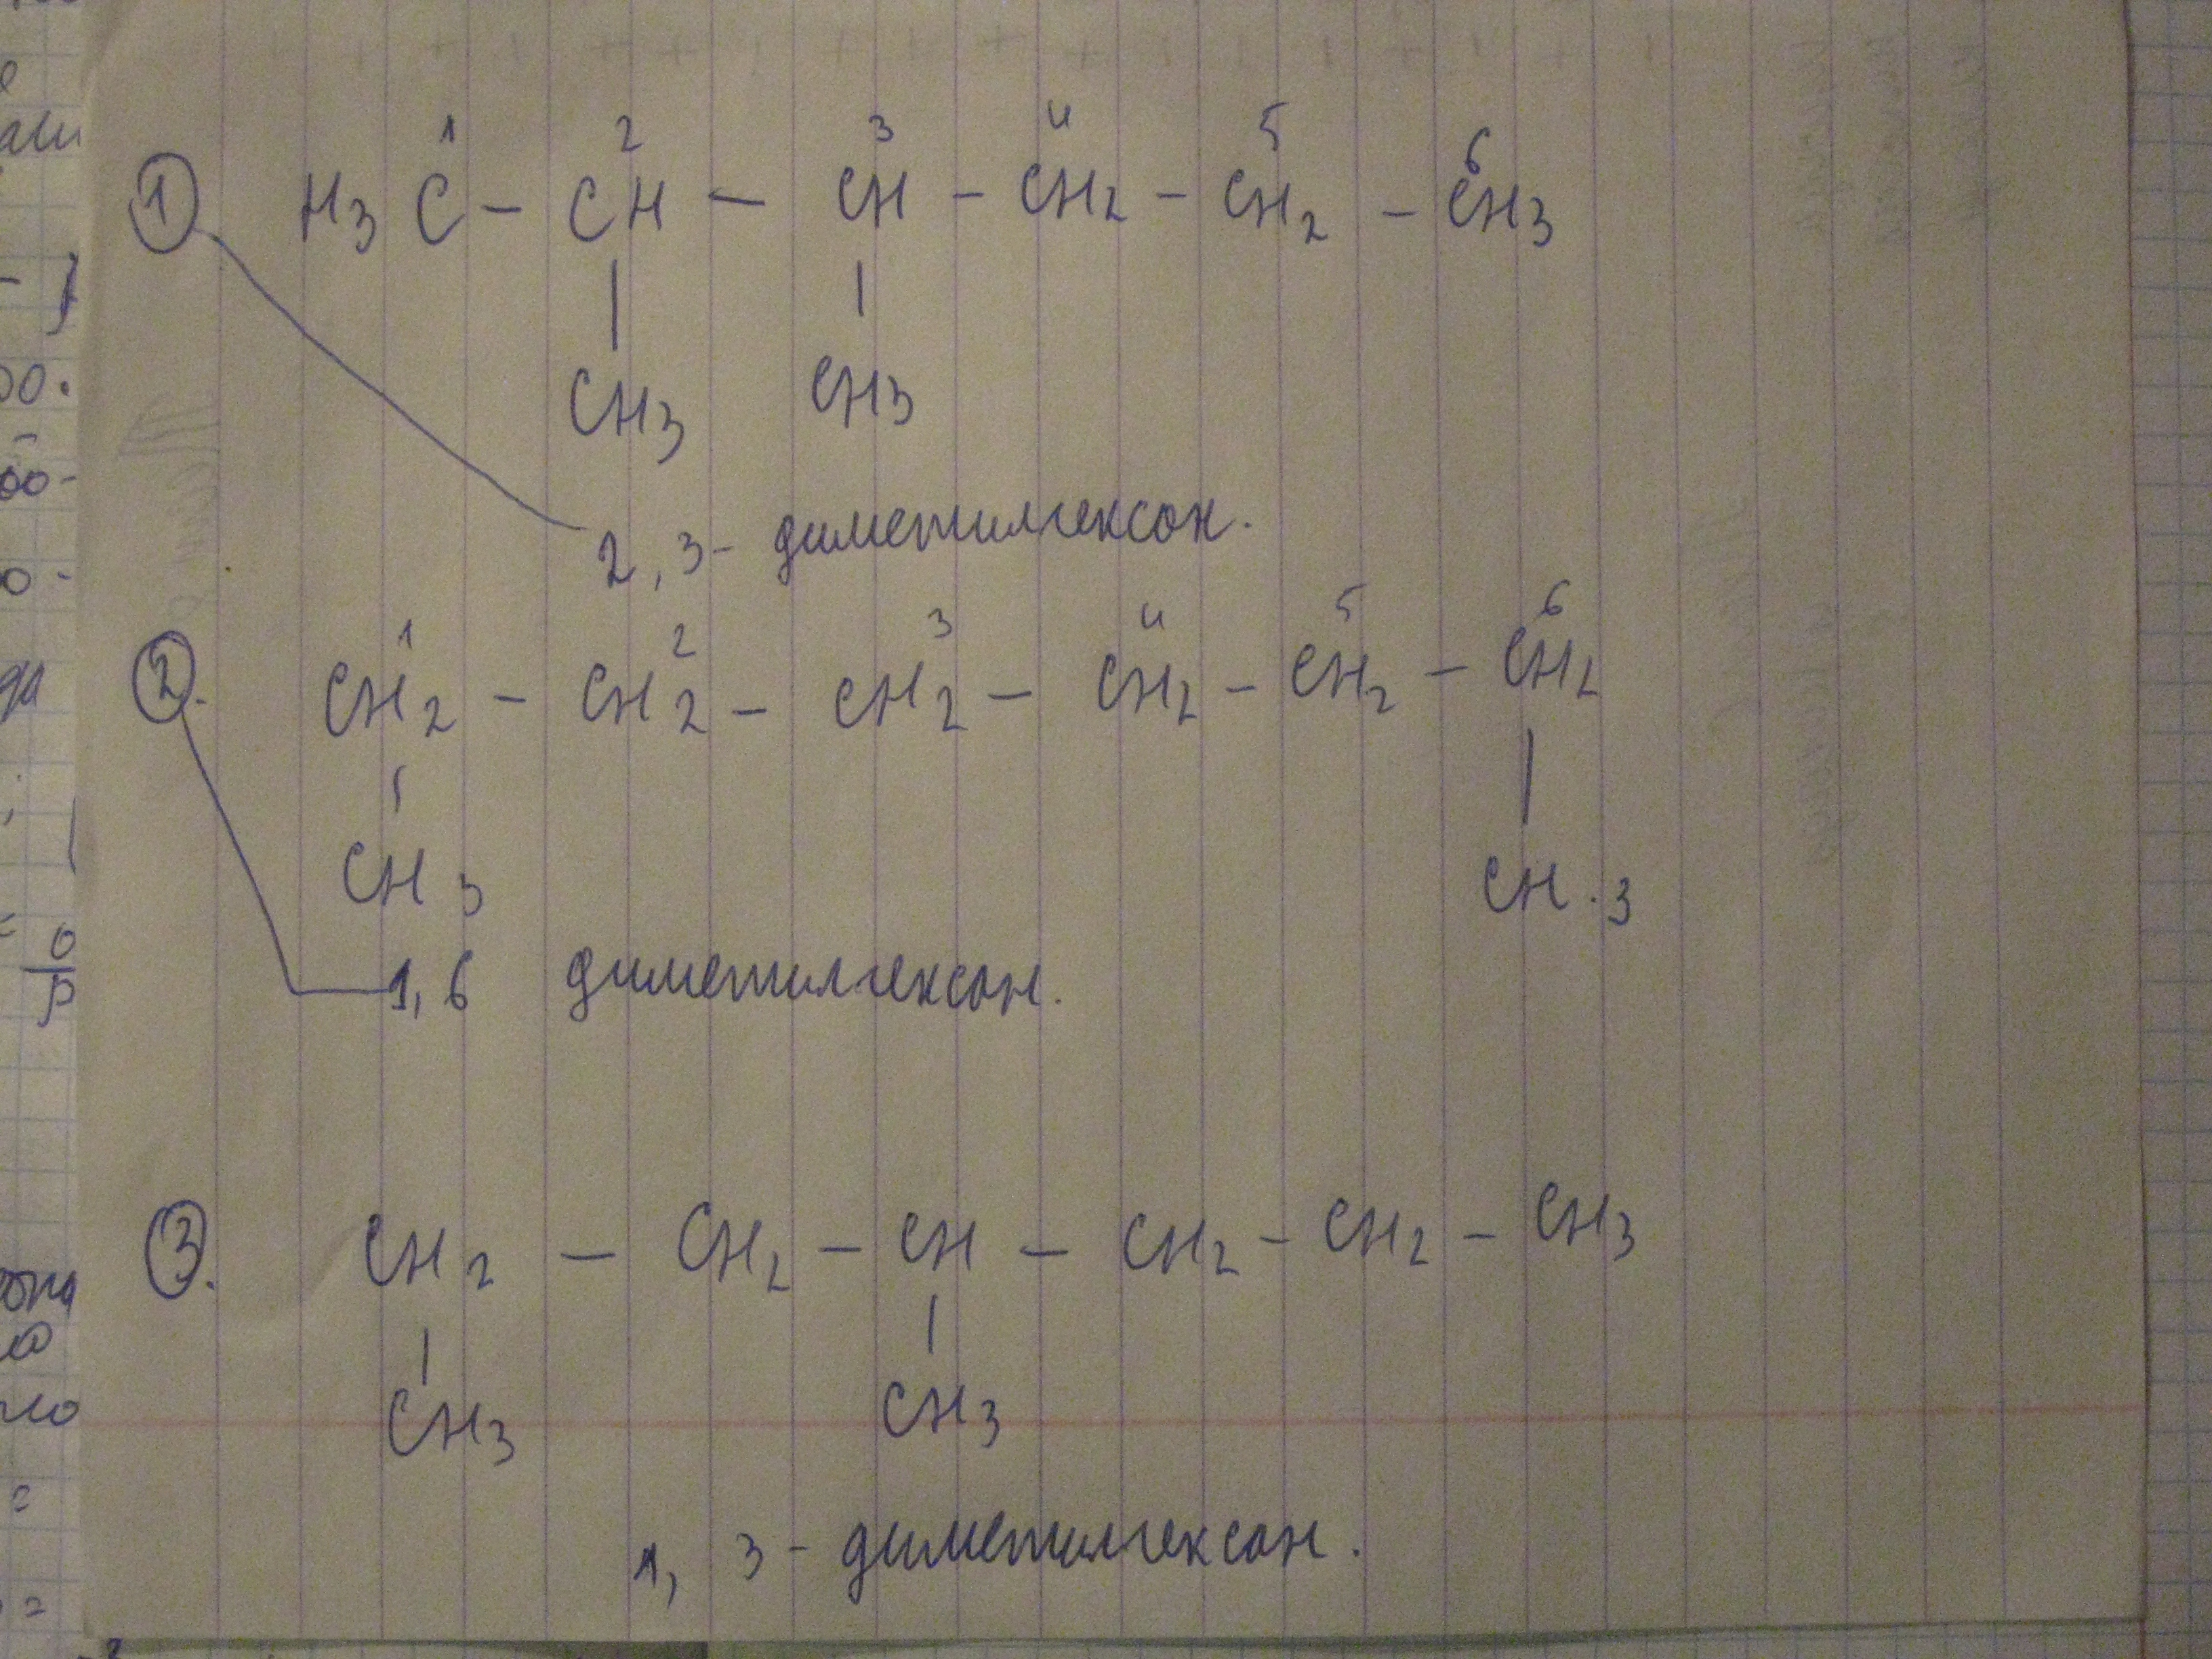 1 2 3 4 5 6
① H3C – CH – CH – CH2 – CH2 – CH3
| |
CH3 CH3
2,3- диметилгексан.
1 2 3 4 5 6
②. CH2 – CH2 – CH2 – CH2 – CH2 – CH2
| |
CH3 CH.3
1,6 диметилгексан.
③. CH2 – CH2 – CH – CH2 – CH2 – CH3
| |
CH3 CH3
1, 3- диметилгексан.